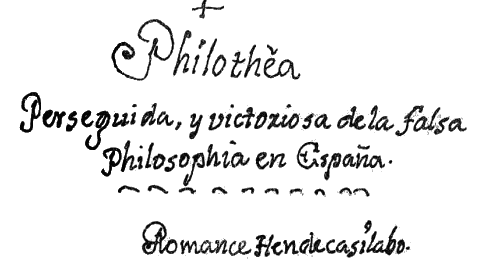 Philothèa
Perseguida, y victoriosa de la falsa
Philosophia en España.
Romance Hendecasílabo.